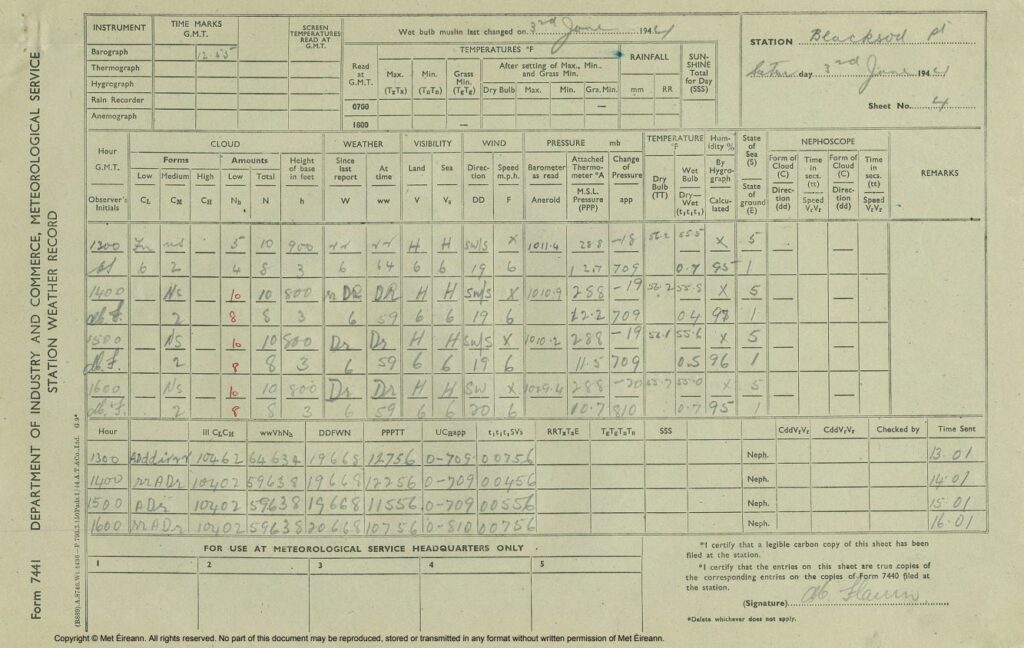 Form 7441 DEPARTMENT OF INDUSTRY AND COMMERCE, METEOROLOGICAL SERVICE
STATION WEATHER RECORD
INSTRUMENT TIME MARKS G.M.T. SCREEN TEMPERATURES READ AT G.M.T.
Barograph 12.45
Thermograph
Hygrograph
Rain Recorder
Anemograph
Wet bulb muslin last changed on 3rd June 1944
TEMPERATURES °F RAINFALL SUN-SHINE Total for Day (SSS)
Read at G.M.T. Max. (TxTx) Min. (TnTn) Grass Min. (TgTg) After setting of Max., Min., and Grass Min.
Dry Bulb Max. Min. Gra. Min. mm RR
0700 —
1800 —
STATION Blacksod Pt
Saturday 3rd June 1944
Sheet No. 4
Hour G.M.T. CLOUD WEATHER VISIBILITY WIND PRESSURE mb TEMPERATURE °F Humidity % State of Sea (S) NEPHOSCOPE REMARKS
Forms Amounts Height of base in feet Since last report At time Land Sea Direction Speed m.p.h. Barometer as read Attached Thermometer °A Change of Pressure Dry Bulb (TT) Wet Bulb By Hygrograph State of ground (E) Form of Cloud (C) Time in secs. (tt) Form of Cloud (C) Time in secs. (tt)
Low Medium High Low Total
Observer's Initials CL CM CH Nh N h W ww V Vs DD F Aneroid M.S.L. Pressure (PPP) app Dry—Wet (t1t1t1) Calculated Direction (dd) Speed VzVz Direction (dd) Speed VzVz
1300 ns 5 10 900 rr rr H H SW/S X 1011.4 288 -18 56.2 55.5 X 5
6 2 4 8 3 6 64 6 6 19 6 12.7 709 0.7 95 1
1400 — Ns — 10 10 800 DR H H SW/S X 1010.9 288 -19 56.2 55.8 X 5
2 8 8 3 6 59 6 6 19 6 12.2 709 0.4 98 1
1500 — Ns — 10 10 800 Dr Dr H H SW/S X 1010.2 288 -19 56.1 55.6 X 5
2 8 8 3 6 59 6 6 19 6 11.5 709 0.5 96 1
1600 — Ns — 10 10 800 Dr Dr H H SW X 1029.4 288 -20 55.7 55.0 X 5
2 8 8 3 6 59 6 6 20 6 10.7 810 0.7 95 1
Hour III CLCH wwVhNh DDFWN PPPTT UCHapp t1t1t1SVs RRTxTxE TgTgTnTn SSS CddVzVz CddVzVz Checked by Time Sent
1300 10462 64634 19668 12756 0-709 00756 Neph. 13.01
1400 10402 59638 19668 12256 0-709 00456 Neph. 14.01
1500 ADr 10402 59638 19668 11556 0-709 00556 Neph. 15.01
1600 10402 59638 20668 10756 0-810 00756 Neph. 16.01
FOR USE AT METEOROLOGICAL SERVICE HEADQUARTERS ONLY
1 2 3 4 5
*I certify that a legible carbon copy of this sheet has been filed at the station.
*I certify that the entries on this sheet are true copies of the corresponding entries on the copies of Form 7440 filed at the station.
(Signature)
*Delete whichever does not apply.
Copyright © Met Éireann. All rights reserved. No part of this document may be reproduced, stored or transmitted in any format without written permission of Met Éireann.